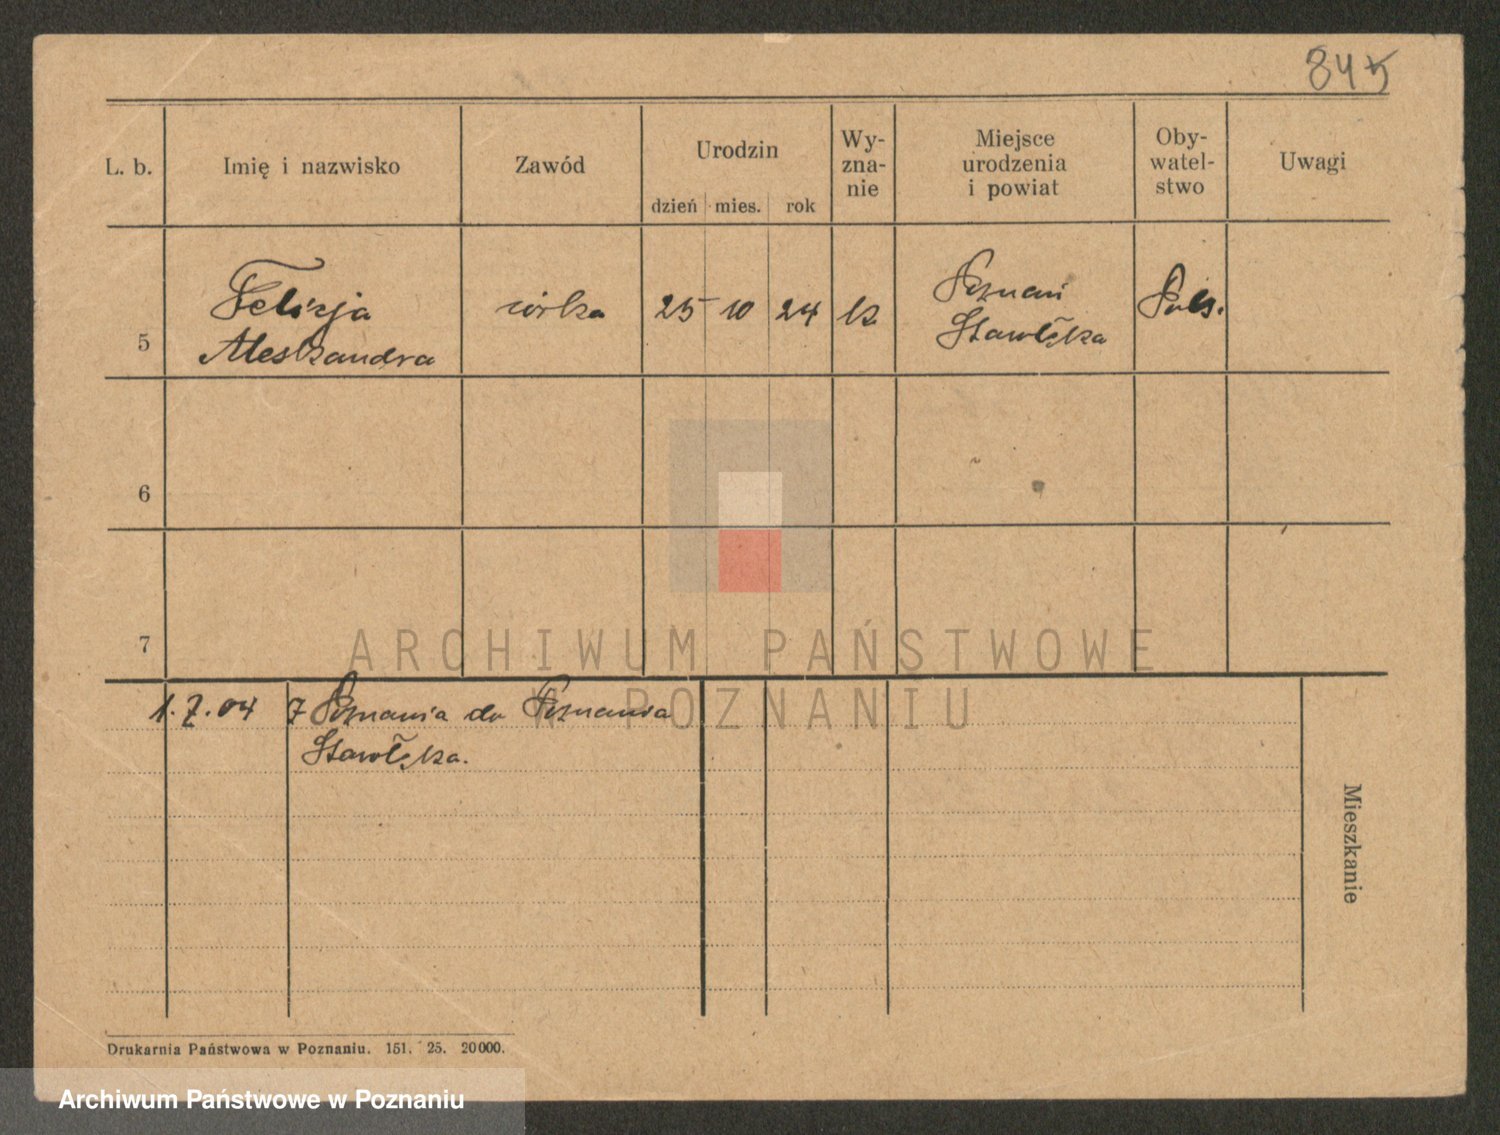 845
L. b.
Imię i nazwisko
Zawód
Urodzin
dzień mies. rok
Wy-
zna-
nie
Miejsce
urodzenia
i powiat
Oby-
watel-
stwo
Uwagi
5
Felicja
Aleskandra
córka
25 10 24
k
Poznań
Starołęka
Pols.
6
7
ARCHIWUM PAŃSTWOWE
W POZNANIU
1.7.04 z Poznania do Poznania
Starołęka.
Mieszkanie
Drukarnia Państwowa w Poznaniu. 151. 25. 20000.
Archiwum Państwowe w Poznaniu